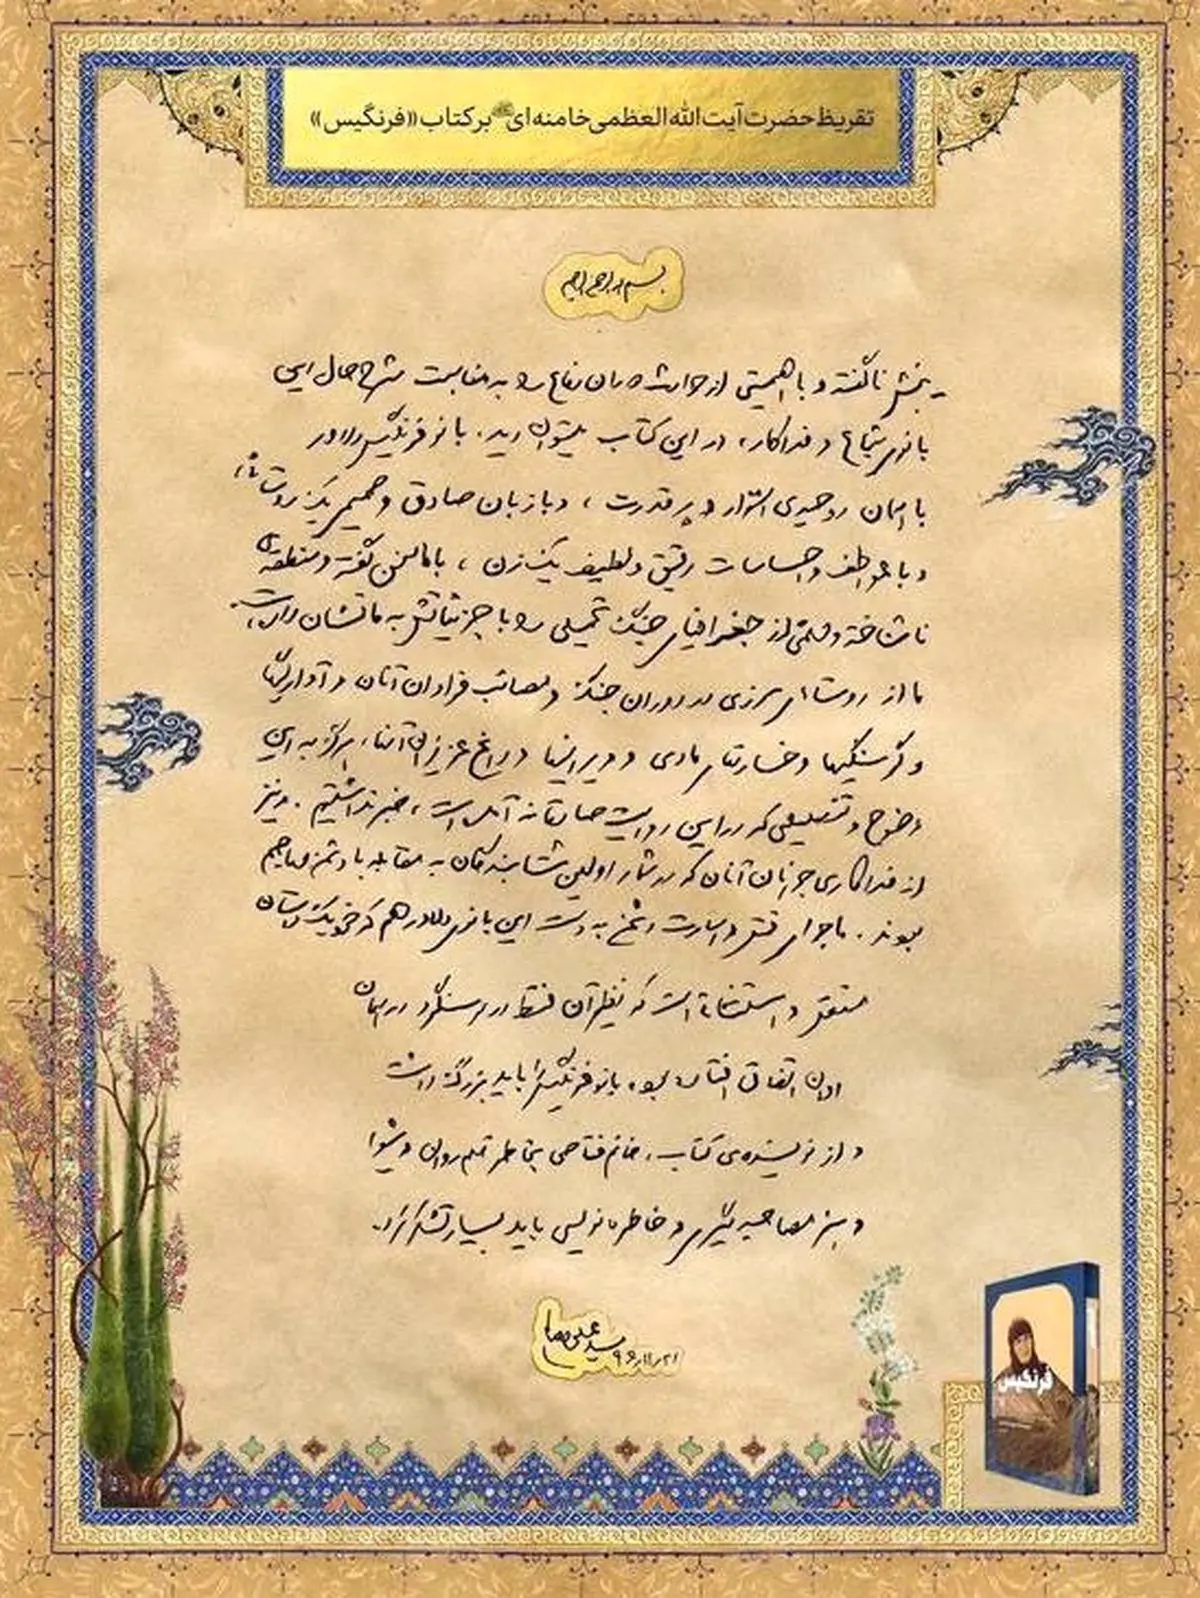 تقریظ حضرت آیت الله العظمی خامنه ای بر کتاب «فرنگیس»
بسم الله الرحمن الرحیم
بخش ناگفته و با اهمیتی از حوادث دوران دفاع را به مناسبت شرح حال این
بانوی شجاع و فداکار، در این کتاب میتوان دید. بانو فرنگیس دلاور
با همان روحیه‌ی استوار و پر قدرت، و با زبان صادق و صمیمی یک روستائی،
و با عواطف و احساسات رقیق و لطیف یک زن، با ما سخن گفته و منطقه‌ی
ناشناخته و مهمی از جغرافیای جنگ تحمیلی را با جزئیاتش به ما نشان داده است.
ما از روستاهای مرزی در دوران جنگ و مصائب فراوان آنان و آوارگیها
و گرسنگیها و خسارتهای مادی و ویرانیها و داغ عزیزان آنها، هرگز به این
وضوح و تفصیلی که در این روایت صادقانه آمده است، خبر نداشتیم. و نیز
از فداکاری جوانان آنان که در شمار اولین شتابندگان به مقابله با دشمن مهاجم
بودند. ماجرای قتل و اسارت دشمن به دست این بانوی دلاور هم که خود یک داستان
مستقل و استثنائی است که نظیر آن فقط در سوسنگرد در همان
اوان اتفاق افتاده بود، بانو فرنگیس را باید بزرگ داشت
و از نویسنده‌ی کتاب، خانم فتاحی بخاطر قلم روان و شیوا
و هنر مصاحبه‌گیری و خاطره‌نویسی باید بسیار تشکر کرد.
سید علی خامنه‌ای
۹۶/۱۱/۲۱
فرنگیس